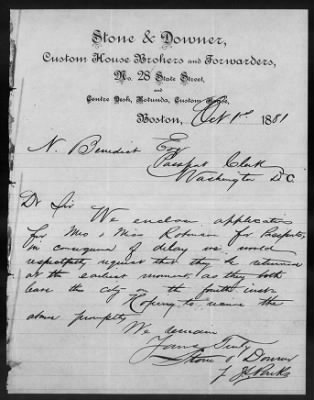 Stone & Downer,
Custom House Brokers and Forwarders,
No. 28 State Street,
and
Centre Desk, Rotunda, Custom House,
Boston, Oct 1st 1881
N. Benedict Esq
Passport Clerk
Washington D.C.
Dr Sir We enclose application
for Mrs & Miss Rotman for Passports,
in consequence of delay we would
respectfully request that they be returned
at the earliest moment, as they both
leave the city on the fourth inst.
Hoping to receive the
above promptly
We remain
Yours Truly
Stone & Downer